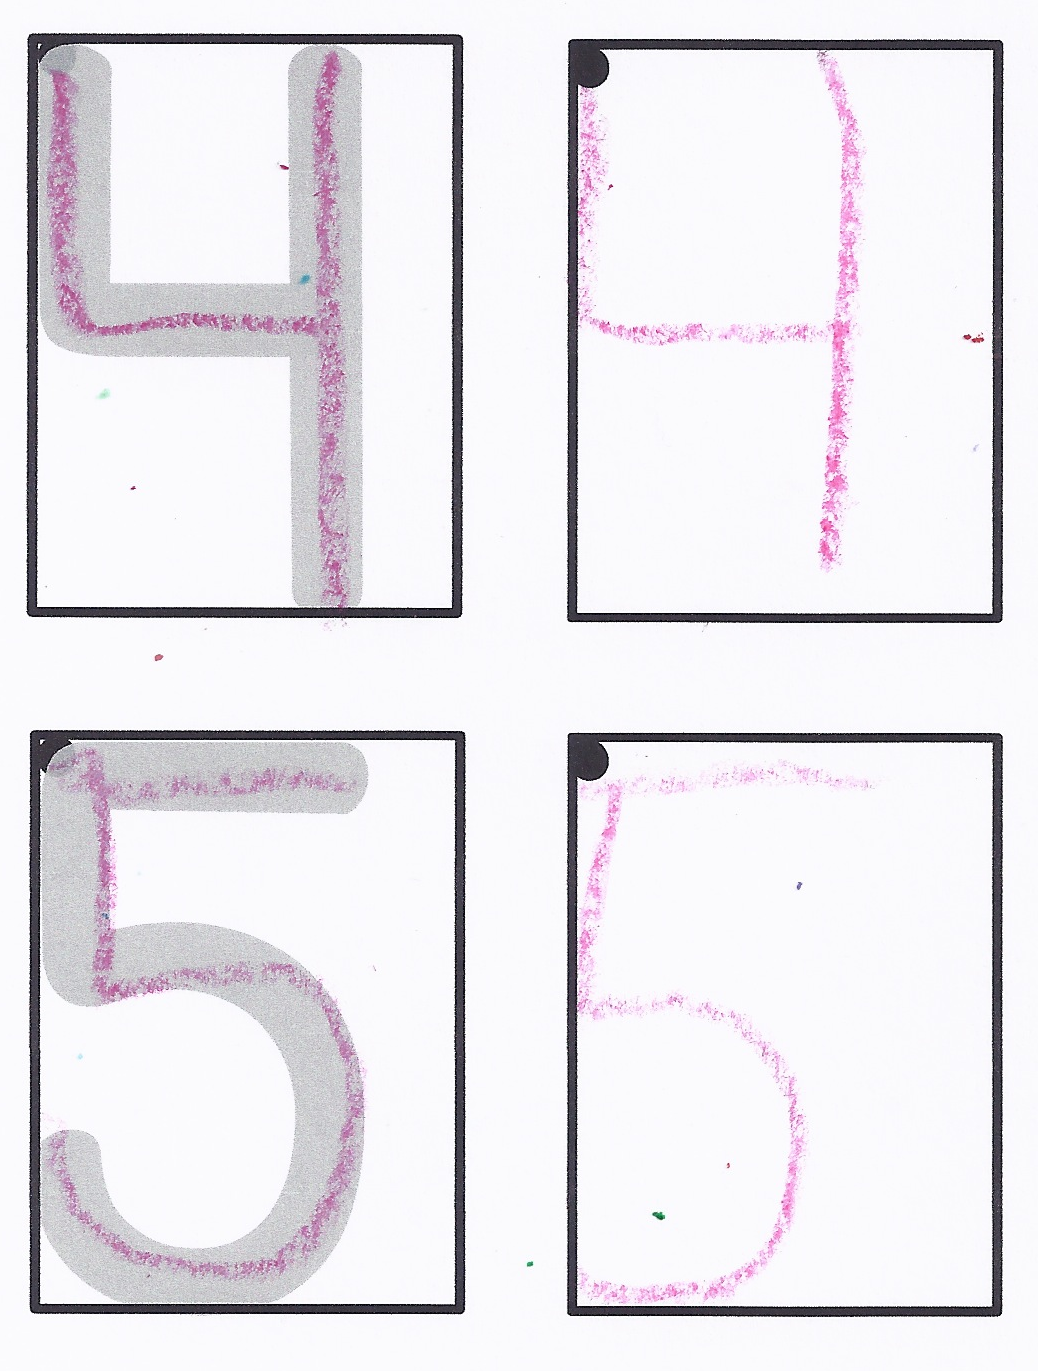 4 4
5 5